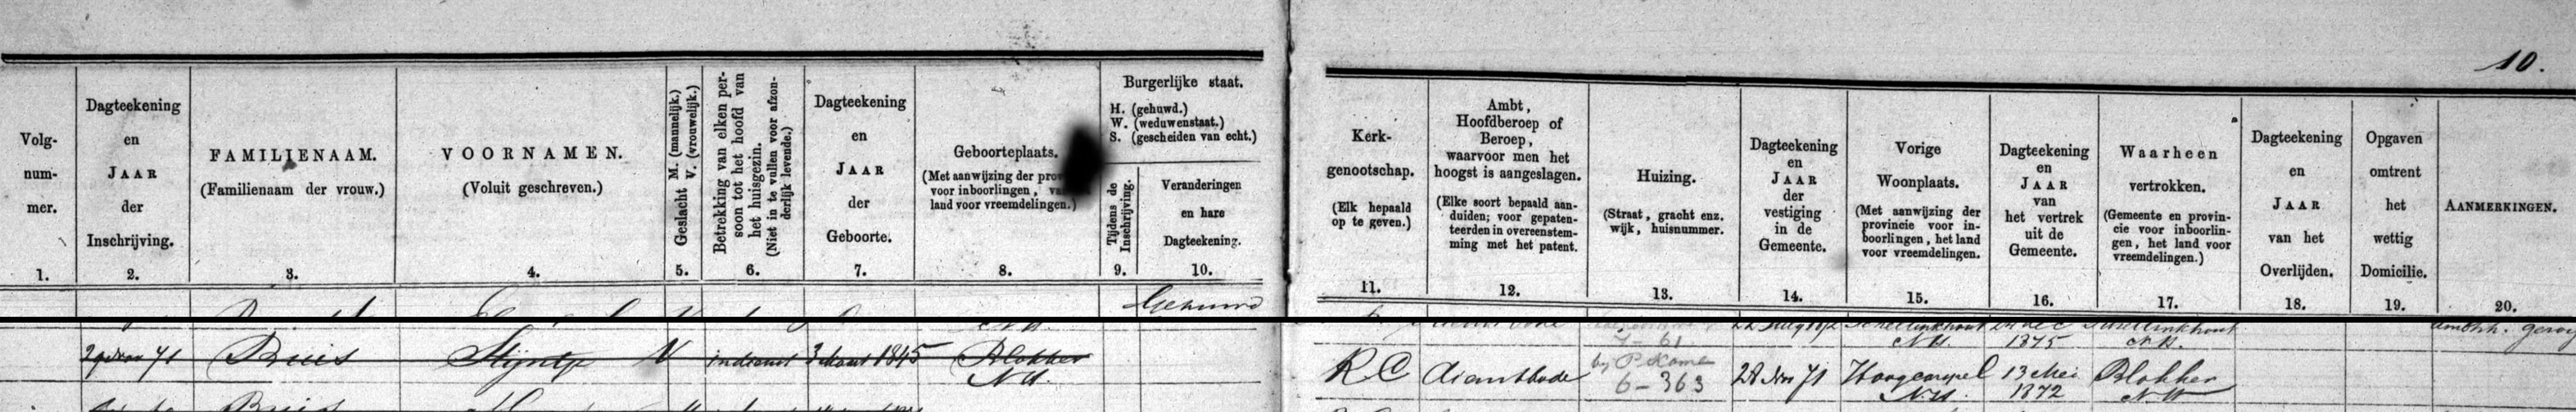 10.
Volg-
num-
mer.
1.
Dagteekening
en
JAAR
der
Inschrijving.
2.
FAMILIENAAM.
(Familienaam der vrouw.)
3.
VOORNAMEN.
(Voluit geschreven.)
4.
Geslacht M. (mannelijk.)
V. (vrouwelijk.)
5.
Betrekking van elken per-
soon tot het hoofd van
het huisgezin.
(Niet in te vullen voor afzon-
derlijk levende.)
6.
Dagteekening
en
JAAR
der
Geboorte.
7.
Geboorteplaats.
(Met aanwijzing der
voor inboorlingen,
land voor vreemdelingen.)
8.
Burgerlijke staat.
H. (gehuwd.)
W. (weduwenstaat.)
S. (gescheiden van echt.)
Tijdens de
Inschrijving.
9.
Veranderingen
en hare
Dagteekening.
10.
Kerk-
genootschap.
(Elk bepaald
op te geven.)
11.
Ambt,
Hoofdberoep of
Beroep,
waarvoor men het
hoogst is aangeslagen.
(Elke soort bepaald aan-
duiden; voor gepaten-
teerden in overeenstem-
ming met het patent.
12.
Huizing.
(Straat, gracht enz.
wijk, huisnummer.
13.
Dagteekening
en
JAAR
der
vestiging
in de
Gemeente.
14.
Vorige
Woonplaats.
(Met aanwijzing der
provincie voor in-
boorlingen, het land
voor vreemdelingen.
15.
Dagteekening
en
JAAR
van
het vertrek
uit de
Gemeente.
16.
Waarheen
vertrokken.
(Gemeente en provin-
cie voor inboorlin-
gen, het land voor
vreemdelingen.)
17.
Dagteekening
en
JAAR
van het
Overlijden.
18.
Opgaven
omtrent
het
wettig
Domicilie.
19.
AANMERKINGEN.
20.
Schellinkhout
N.H.
1875
Schellinkhout
N.H.
7-61
Buis Stijntje V 3 Maart 1845 Blokker
N.H.
R C dienstbode
by P. Kome
6-363
28 Nov 71
N.H.
13 Mei
1872
Blokker
N.H.
Buis